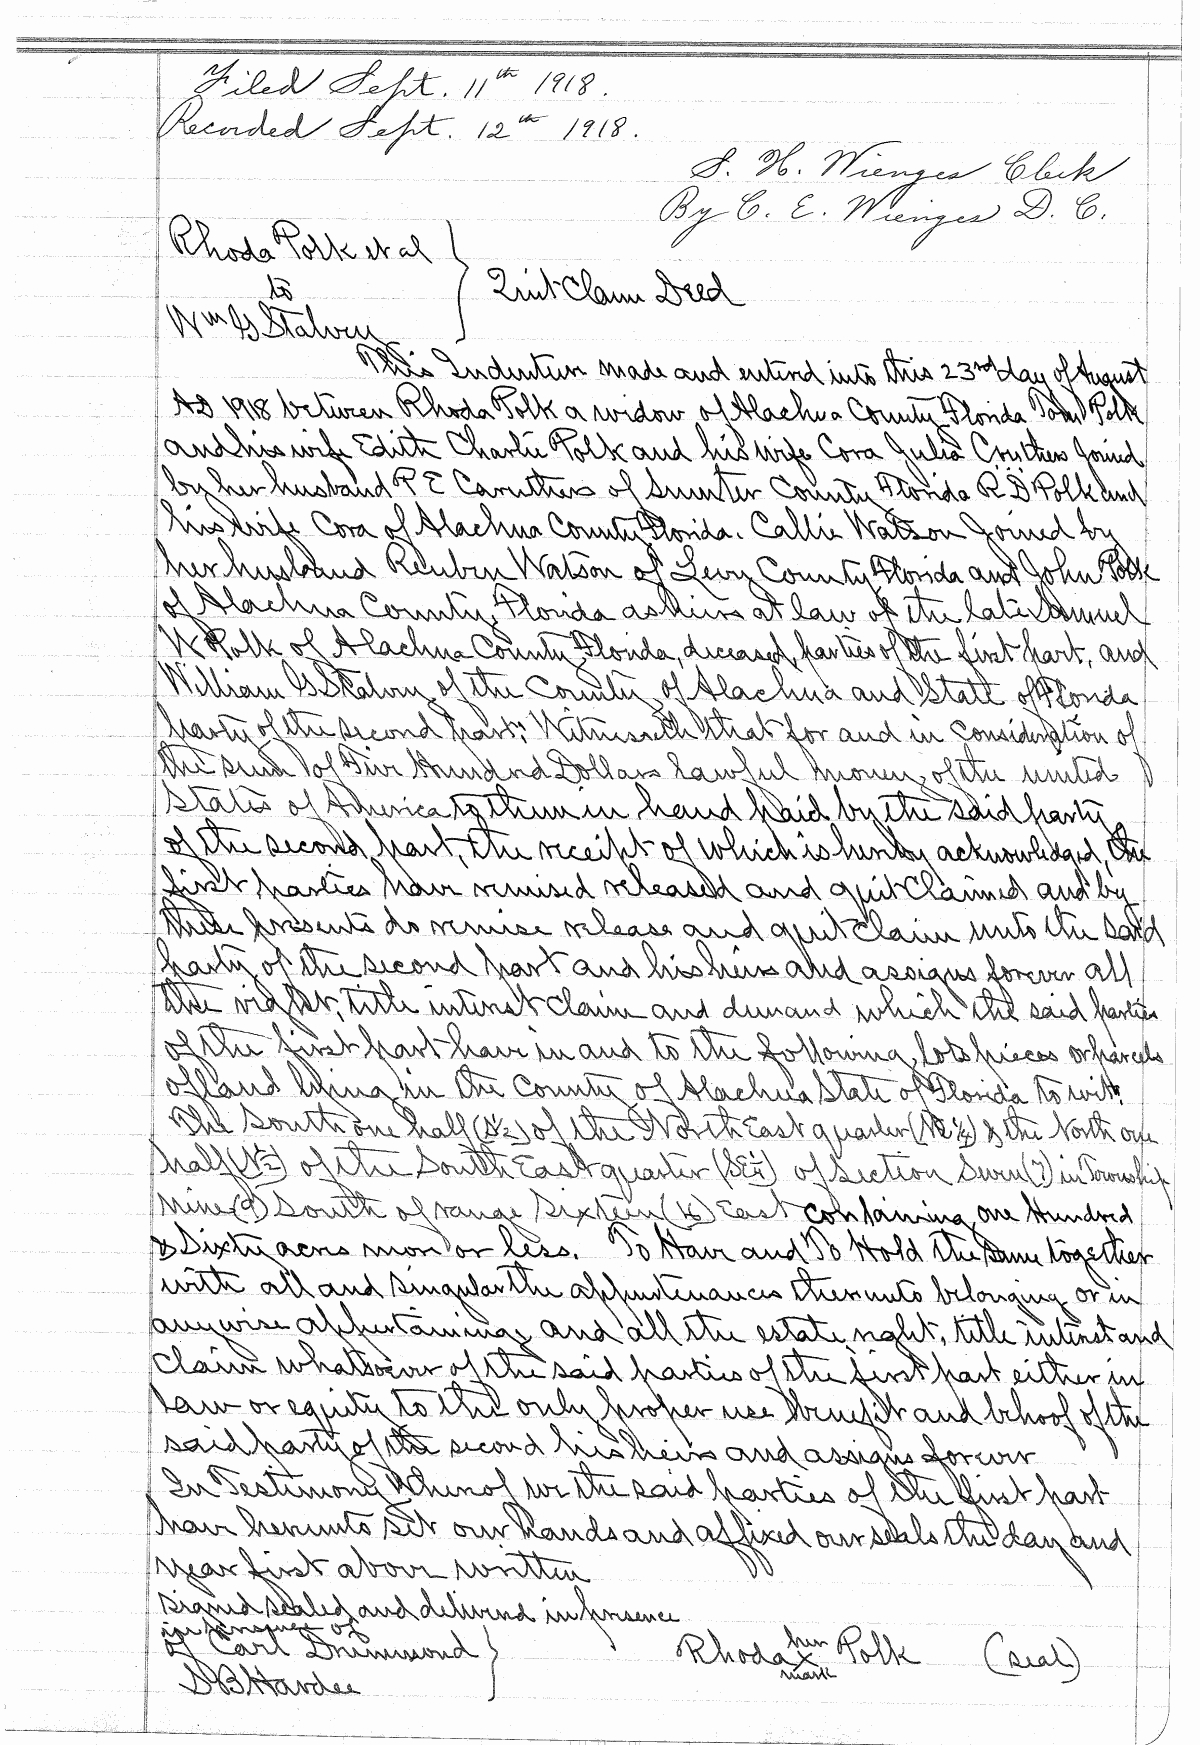 Filed Sept. 11th 1918.
Recorded Sept. 12th 1918.
S. H. Wienges Clerk
By C. E. Wienges D. C.
Rhoda Polk et al
to
Quit Claim Deed
Wm G Stalvey
This Indenture made and entered into this 23rd day of August
AD 1918 between Rhoda Polk a widow of Alachua County Florida Tom Polk
and his wife Edith Charlie Polk and his wife Cora Julia Cruthers joined
by her husband P E Caruthers of Sumter County Florida R D Polk and
his wife Cora of Alachua County Florida. Callie Watson joined by
her husband Reuben Watson of Levy County Florida and John Polk
of Alachua County, Florida as heirs at law of the late Samuel
W Polk of Alachua County Florida, deceased, parties of the first part, and
William G Stalvey of the County of Alachua and State of Florida
party of the second part: Witnesseth that for and in consideration of
the sum of Five Hundred Dollars lawful money of the united
States of America to them in hand paid by the said party
of the second part, the receipt of which is hereby acknowledged, the
first parties have remised released and quit claimed and by
these presents do remise release and quit claim unto the said
party of the second part and his heirs and assigns forever all
the right, title interest claim and demand which the said parties
of the first part have in and to the following lots pieces or parcels
of land lying in the County of Alachua State of Florida to wit:
The South one half (S½) of the North East quarter (NE¼) & the North one
half (N½) of the South East quarter (SE¼) of Section Seven (7) in Township
nine (9) South of range Sixteen (16) East containing one Hundred
& Sixty acres more or less. To Have and To Hold the same together
with all and singular the appurtenances thereunto belonging or in
anywise appertaining, and all the estate, right, title interest and
claim whatsoever of the said parties of the first part either in
law or equity to the only proper use benefit and behoof of the
said party of the second his heirs and assigns forever
In Testimony Whereof we the said parties of the first part
have hereunto set our hands and affixed our seals the day and
year first above written
signed sealed and delivered in presence
in presence of
of Carl Drummond
Rhoda her x mark Polk (seal)
D B Hardee